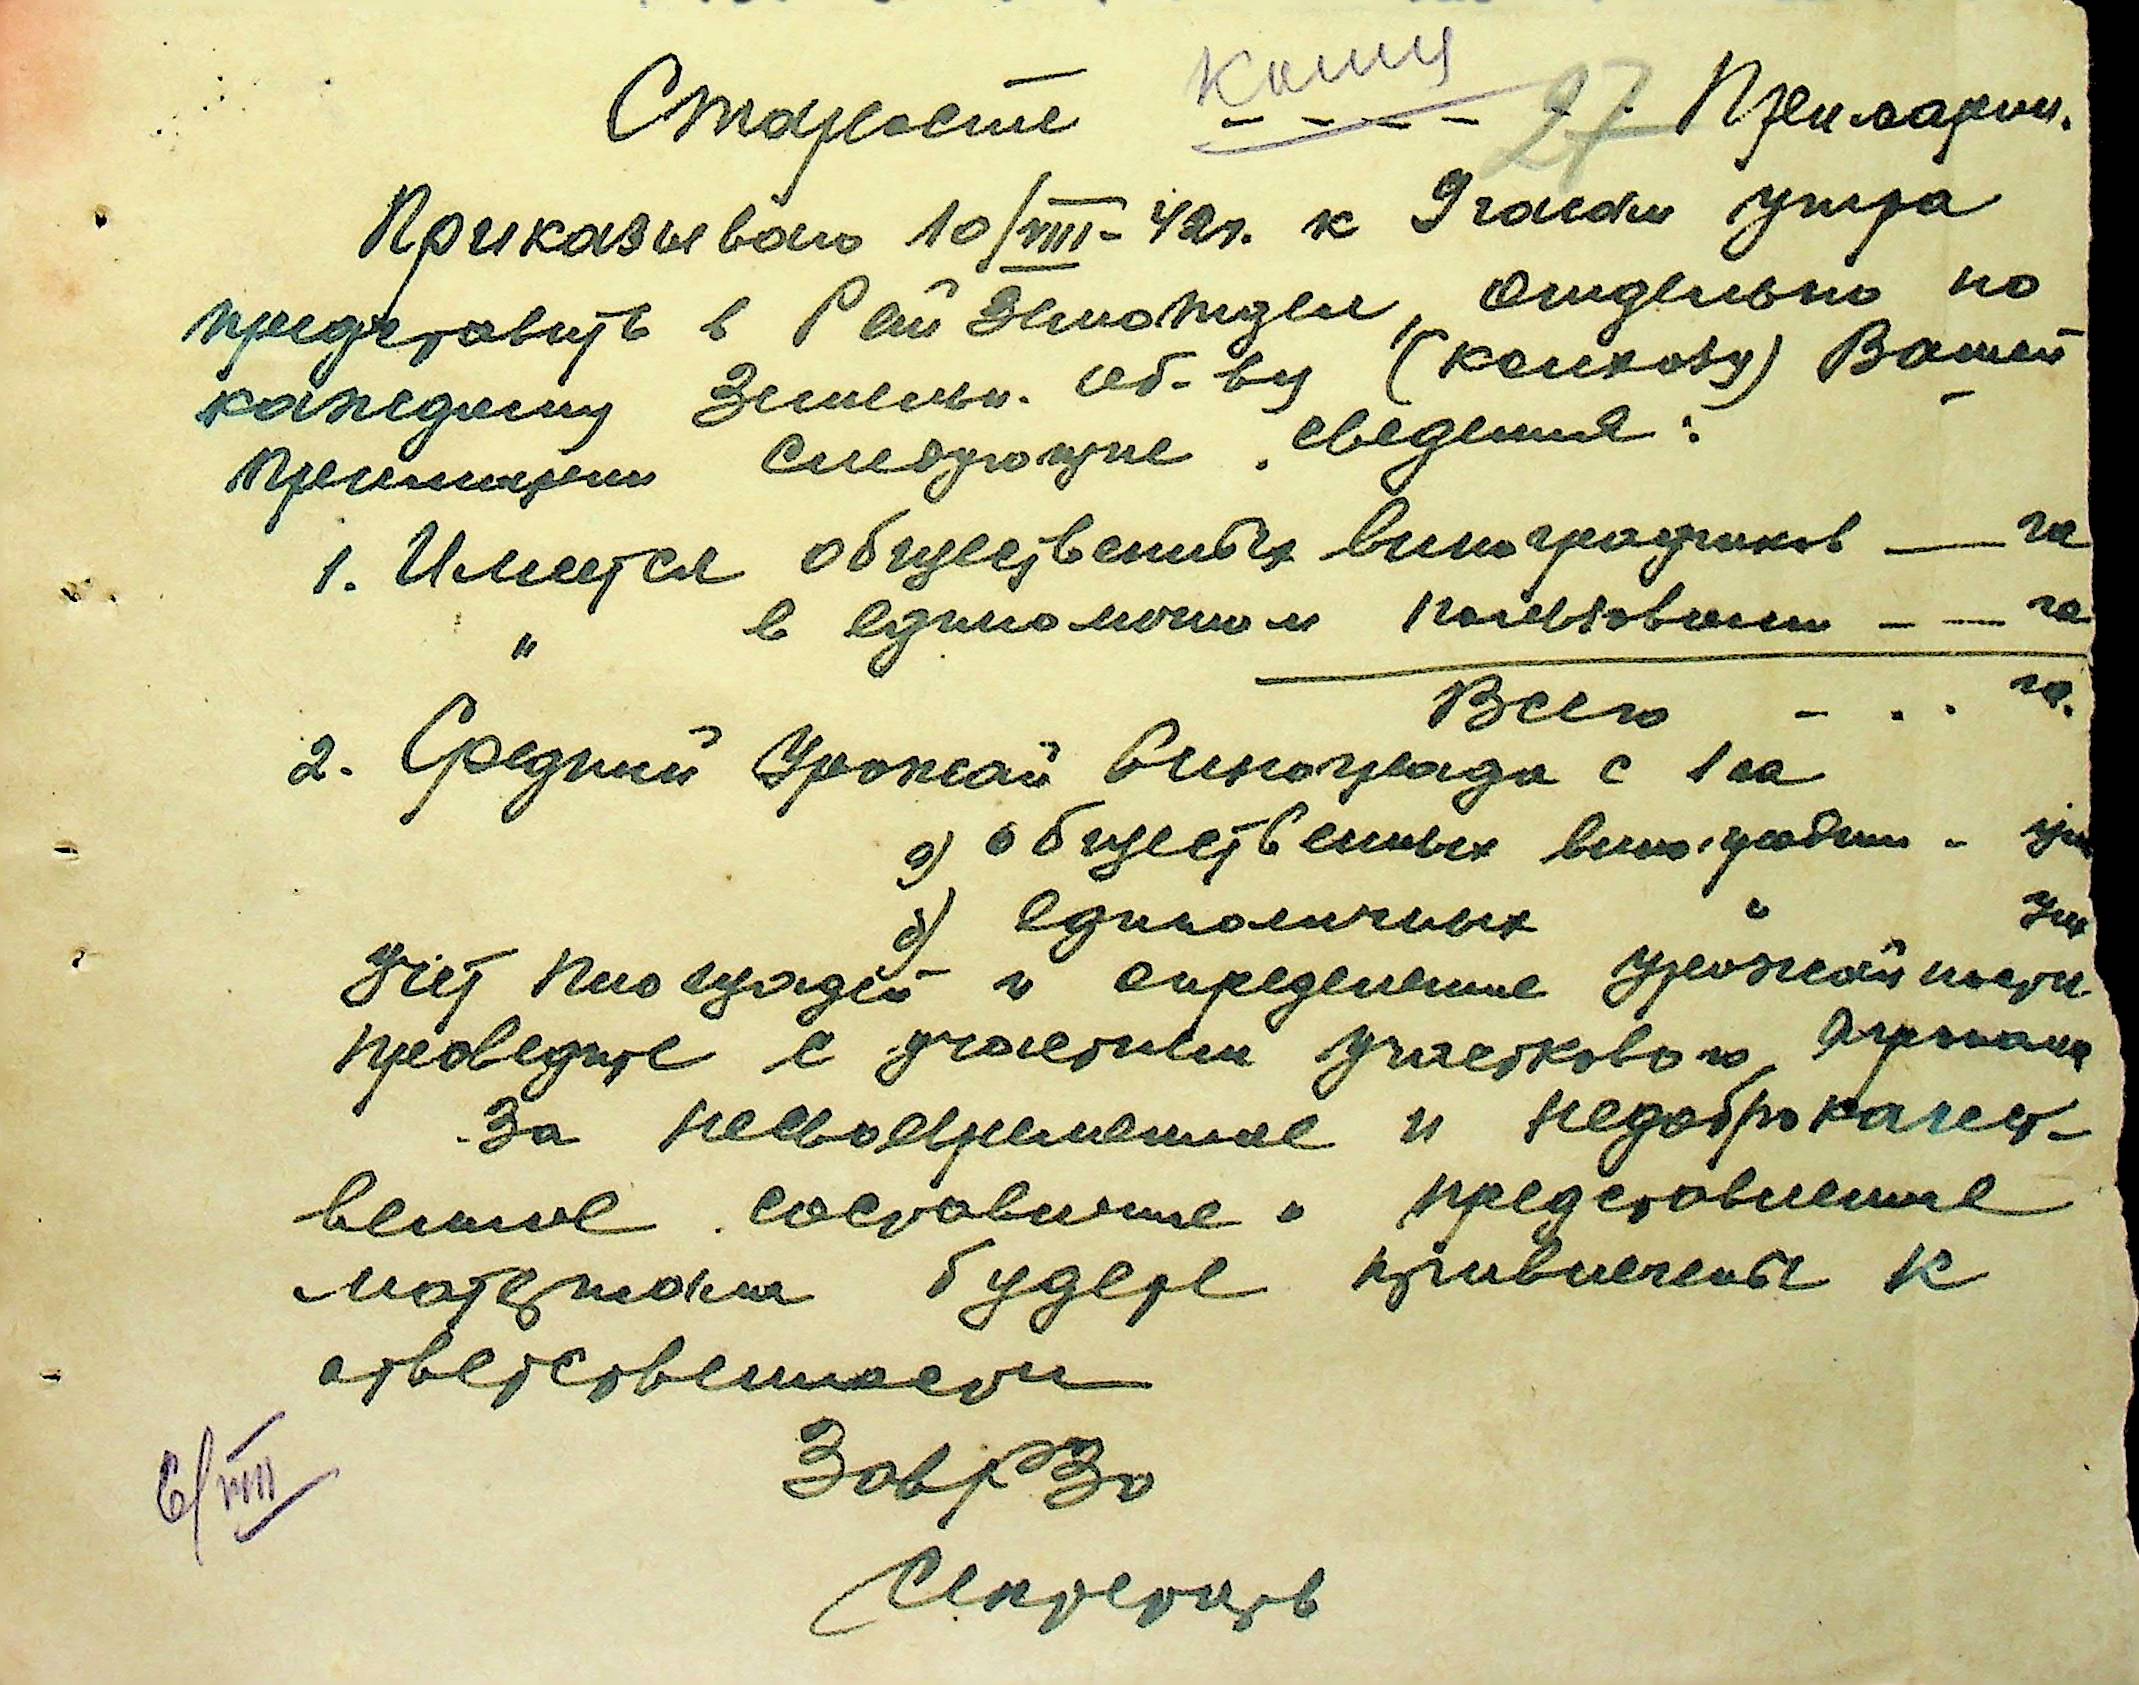 Старосте - - - - Примарии.
27
Приказываю 10/VIII-42г. к 9 часам утра
представить в Райземотдел, отдельно по
каждому Земельн. об-ву (колхозу) Вашей
Примарии следующие сведения:
1. Имеется общественных виноградников — га
" в единоличном пользовании - — га
Всего - . . га.
2. Средний Урожай винограда с 1 га
а) общественных виноградн. -
б) единоличных "
Учет площадей и определение урожайности
проведите с участием участкового Агронома
За несвоевременное и недоброкачест-
венное составление и представление
материала будете привлечены к
ответственности
ЗавРЗО
Секретарь
6/VIII